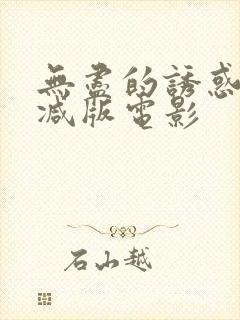 無盡的誘惑
減版電影
石山越